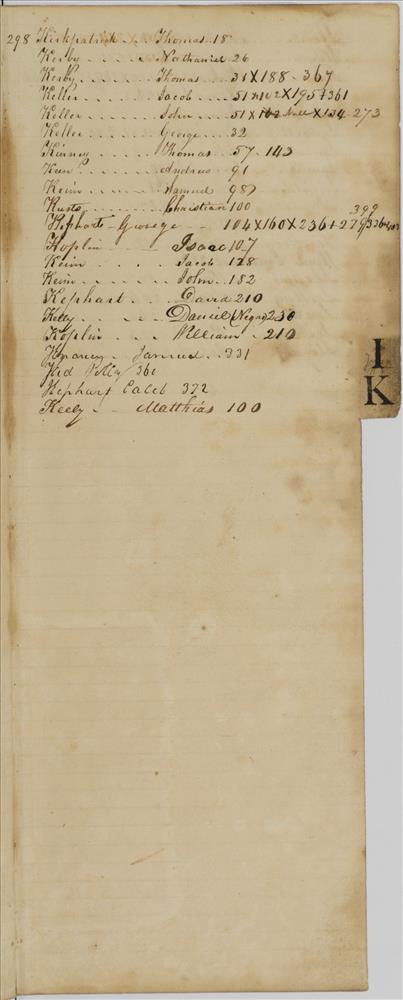 298 Kirkpatrick . . Thomas 18
Kerby . . . . . Nathaniel 26
Kerby . . . . . . Thomas 31 X 188 - 367
Keller . . . . . . Jacob . . . . 51 X 102 X 195 + 361
Keller . . . . . . John . . . . 51 X 102 X 134 - 273
Keller . . . . . . George . . . 32
Kinney . . . . . Thomas . . 57 - 143
Andrew 91
Keim . . . . . . Samuel 98
Christian 100
399
Kephart - George - 104 X 160 X 236 + 279
Koplin . . . Isaac 107
Keim . . . . Jacob 128
Keim . . . . . . John . 182
Kephart . . . David 210
Kelly . . . . . Daniel (Negro) 230
Koplin . . . William . 210
Samuel . 331
Polly 360
Kephart Caleb 372
Keely . . Matthias 100
I
K